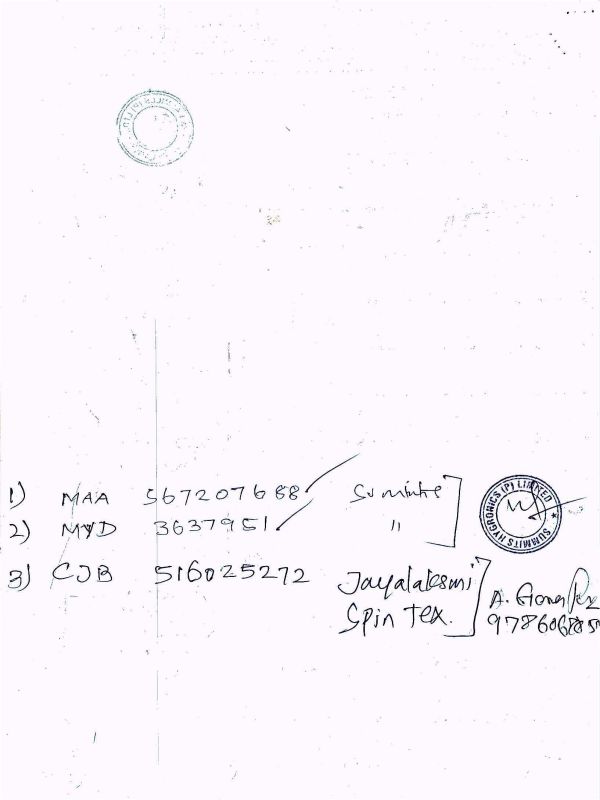 1) MAA 567207688 Summits
2) MYD 3637951 "
3) CJB 516025272 Jayalaksmi
Spin Tex.
A.
SUMMITS HYGRONICS (P) LIMITED